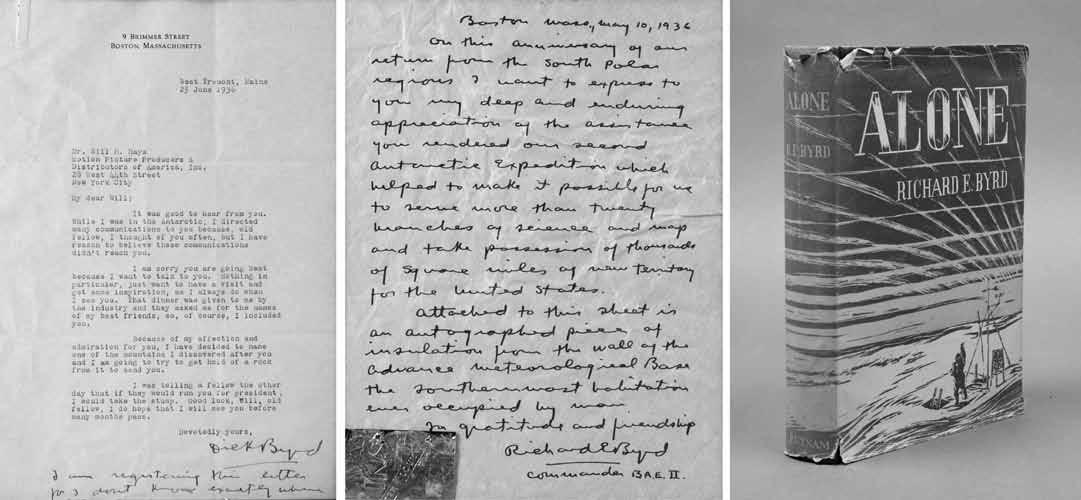 9 BRIMMER STREET
BOSTON, MASSACHUSETTS
West Tremont, Maine
25 June 1936
Mr. Will H. Hays
Motion Picture Producers &
Distributors of America, Inc.
28 West 44th Street
New York City
My dear Will:
It was good to hear from you.
While I was in the antarctic, I directed
many communications to you because, old
fellow, I thought of you often, but I have
reason to believe these communications
didn't reach you.
I am sorry you are going West
because I want to talk to you. Nothing in
particular, just want to have a visit and
get some inspiration, as I always do when
I see you. That dinner was given to me by
the industry and they asked me for the names
of my best friends, so, of course, I included
you.
Because of my affection and
admiration for you, I have decided to name
one of the mountains I discovered after you
and I am going to try to get hold of a rock
from it to send you.
I was telling a fellow the other
day that if they would run you for president,
I would take the stump. Good luck, Will, old
fellow, I do hope that I will see you before
many months pass.
Devotedly yours,
Dick Byrd
I am registering this letter
for I don't know exactly where
Boston Mass., May 10, 1936
On this anniversary of our
return from the South Polar
regions I want to express to
you my deep and enduring
appreciation of the assistance
you rendered our second
Antarctic Expedition which
helped to make it possible for us
to serve more than twenty
branches of science and map
and take possession of thousands
of square miles of new territory
for the United States.
Attached to this sheet is
an autographed piece of
insulation from the wall of the
Advance meteorological Base
the southernmost habitation
ever occupied by man.
In gratitude and friendship
Richard E Byrd
Commander B.A.E. II.
ALONE
R.E. BYRD
PUTNAM
ALONE
RICHARD E. BYRD